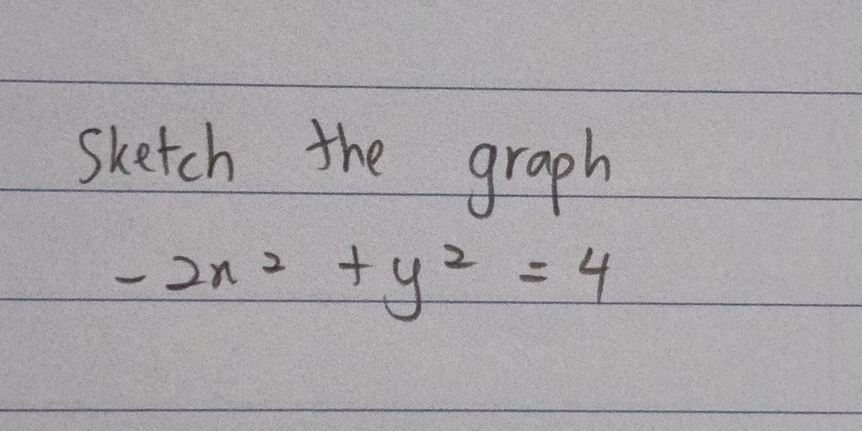 Sketch the graph
-2x² + y² = 4